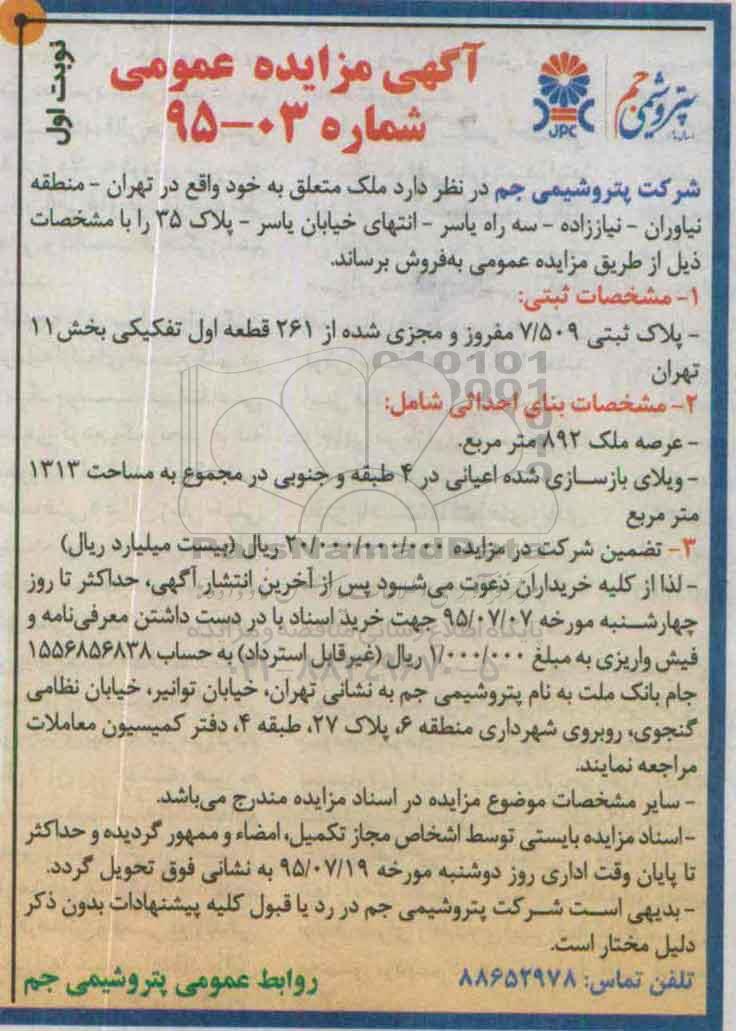 نوبت اول
آگهی مزایده عمومی
شماره ۰۳-۹۵
پتروشیمی جم
JPC
شرکت پتروشیمی جم در نظر دارد ملک متعلق به خود واقع در تهران - منطقه
نیاوران - نیاززاده - سه راه یاسر - انتهای خیابان یاسر - پلاک ۳۵ را با مشخصات
ذیل از طریق مزایده عمومی به‌فروش برساند.
۱- مشخصات ثبتی:
- پلاک ثبتی ۷/۵۰۹ مفروز و مجزی شده از ۲۶۱ قطعه اول تفکیکی بخش۱۱
تهران
۲- مشخصات بنای احداثی شامل:
- عرصه ملک ۸۹۲ متر مربع.
- ویلای بازسازی شده اعیانی در ۴ طبقه و جنوبی در مجموع به مساحت ۱۳۱۳
متر مربع
۳- تضمین شرکت در مزایده ۲۰/۰۰۰/۰۰۰/۰۰۰ ریال (بیست میلیارد ریال)
- لذا از کلیه خریداران دعوت می‌شود پس از آخرین انتشار آگهی، حداکثر تا روز
چهارشنبه مورخه ۹۵/۰۷/۰۷ جهت خرید اسناد با در دست داشتن معرفی‌نامه و
فیش واریزی به مبلغ ۱/۰۰۰/۰۰۰ ریال (غیرقابل استرداد) به حساب ۱۵۵۶۸۵۶۸۳۸
جام بانک ملت به نام پتروشیمی جم به نشانی تهران، خیابان توانیر، خیابان نظامی
گنجوی، روبروی شهرداری منطقه ۶، پلاک ۲۷، طبقه ۴، دفتر کمیسیون معاملات
مراجعه نمایند.
- سایر مشخصات موضوع مزایده در اسناد مزایده مندرج می‌باشد.
-اسناد مزایده بایستی توسط اشخاص مجاز تکمیل، امضاء و ممهور گردیده و حداکثر
تا پایان وقت اداری روز دوشنبه مورخه ۹۵/۰۷/۱۹ به نشانی فوق تحویل گردد.
- بدیهی است شرکت پتروشیمی جم در رد یا قبول کلیه پیشنهادات بدون ذکر
دلیل مختار است.
تلفن تماس: ۸۸۶۵۲۹۷۸
روابط عمومی پتروشیمی جم